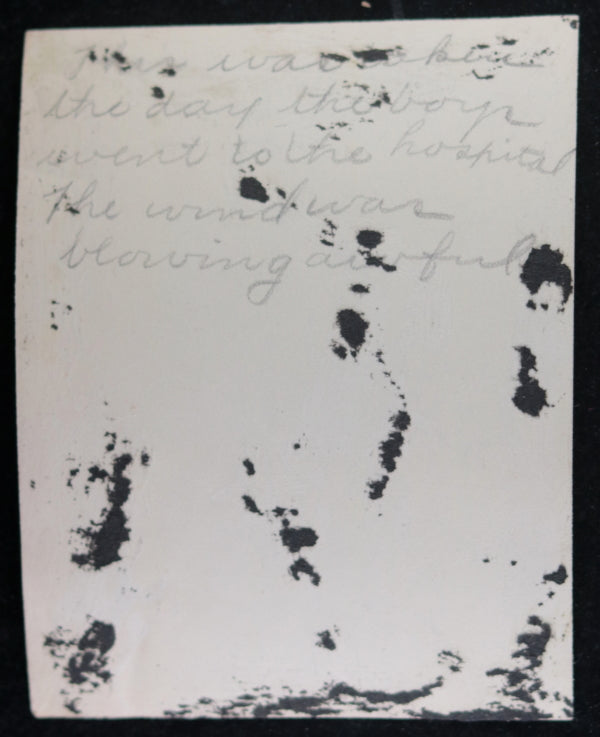 This was taken
the day the boys
went to the hospital
The wind was
blowing awful